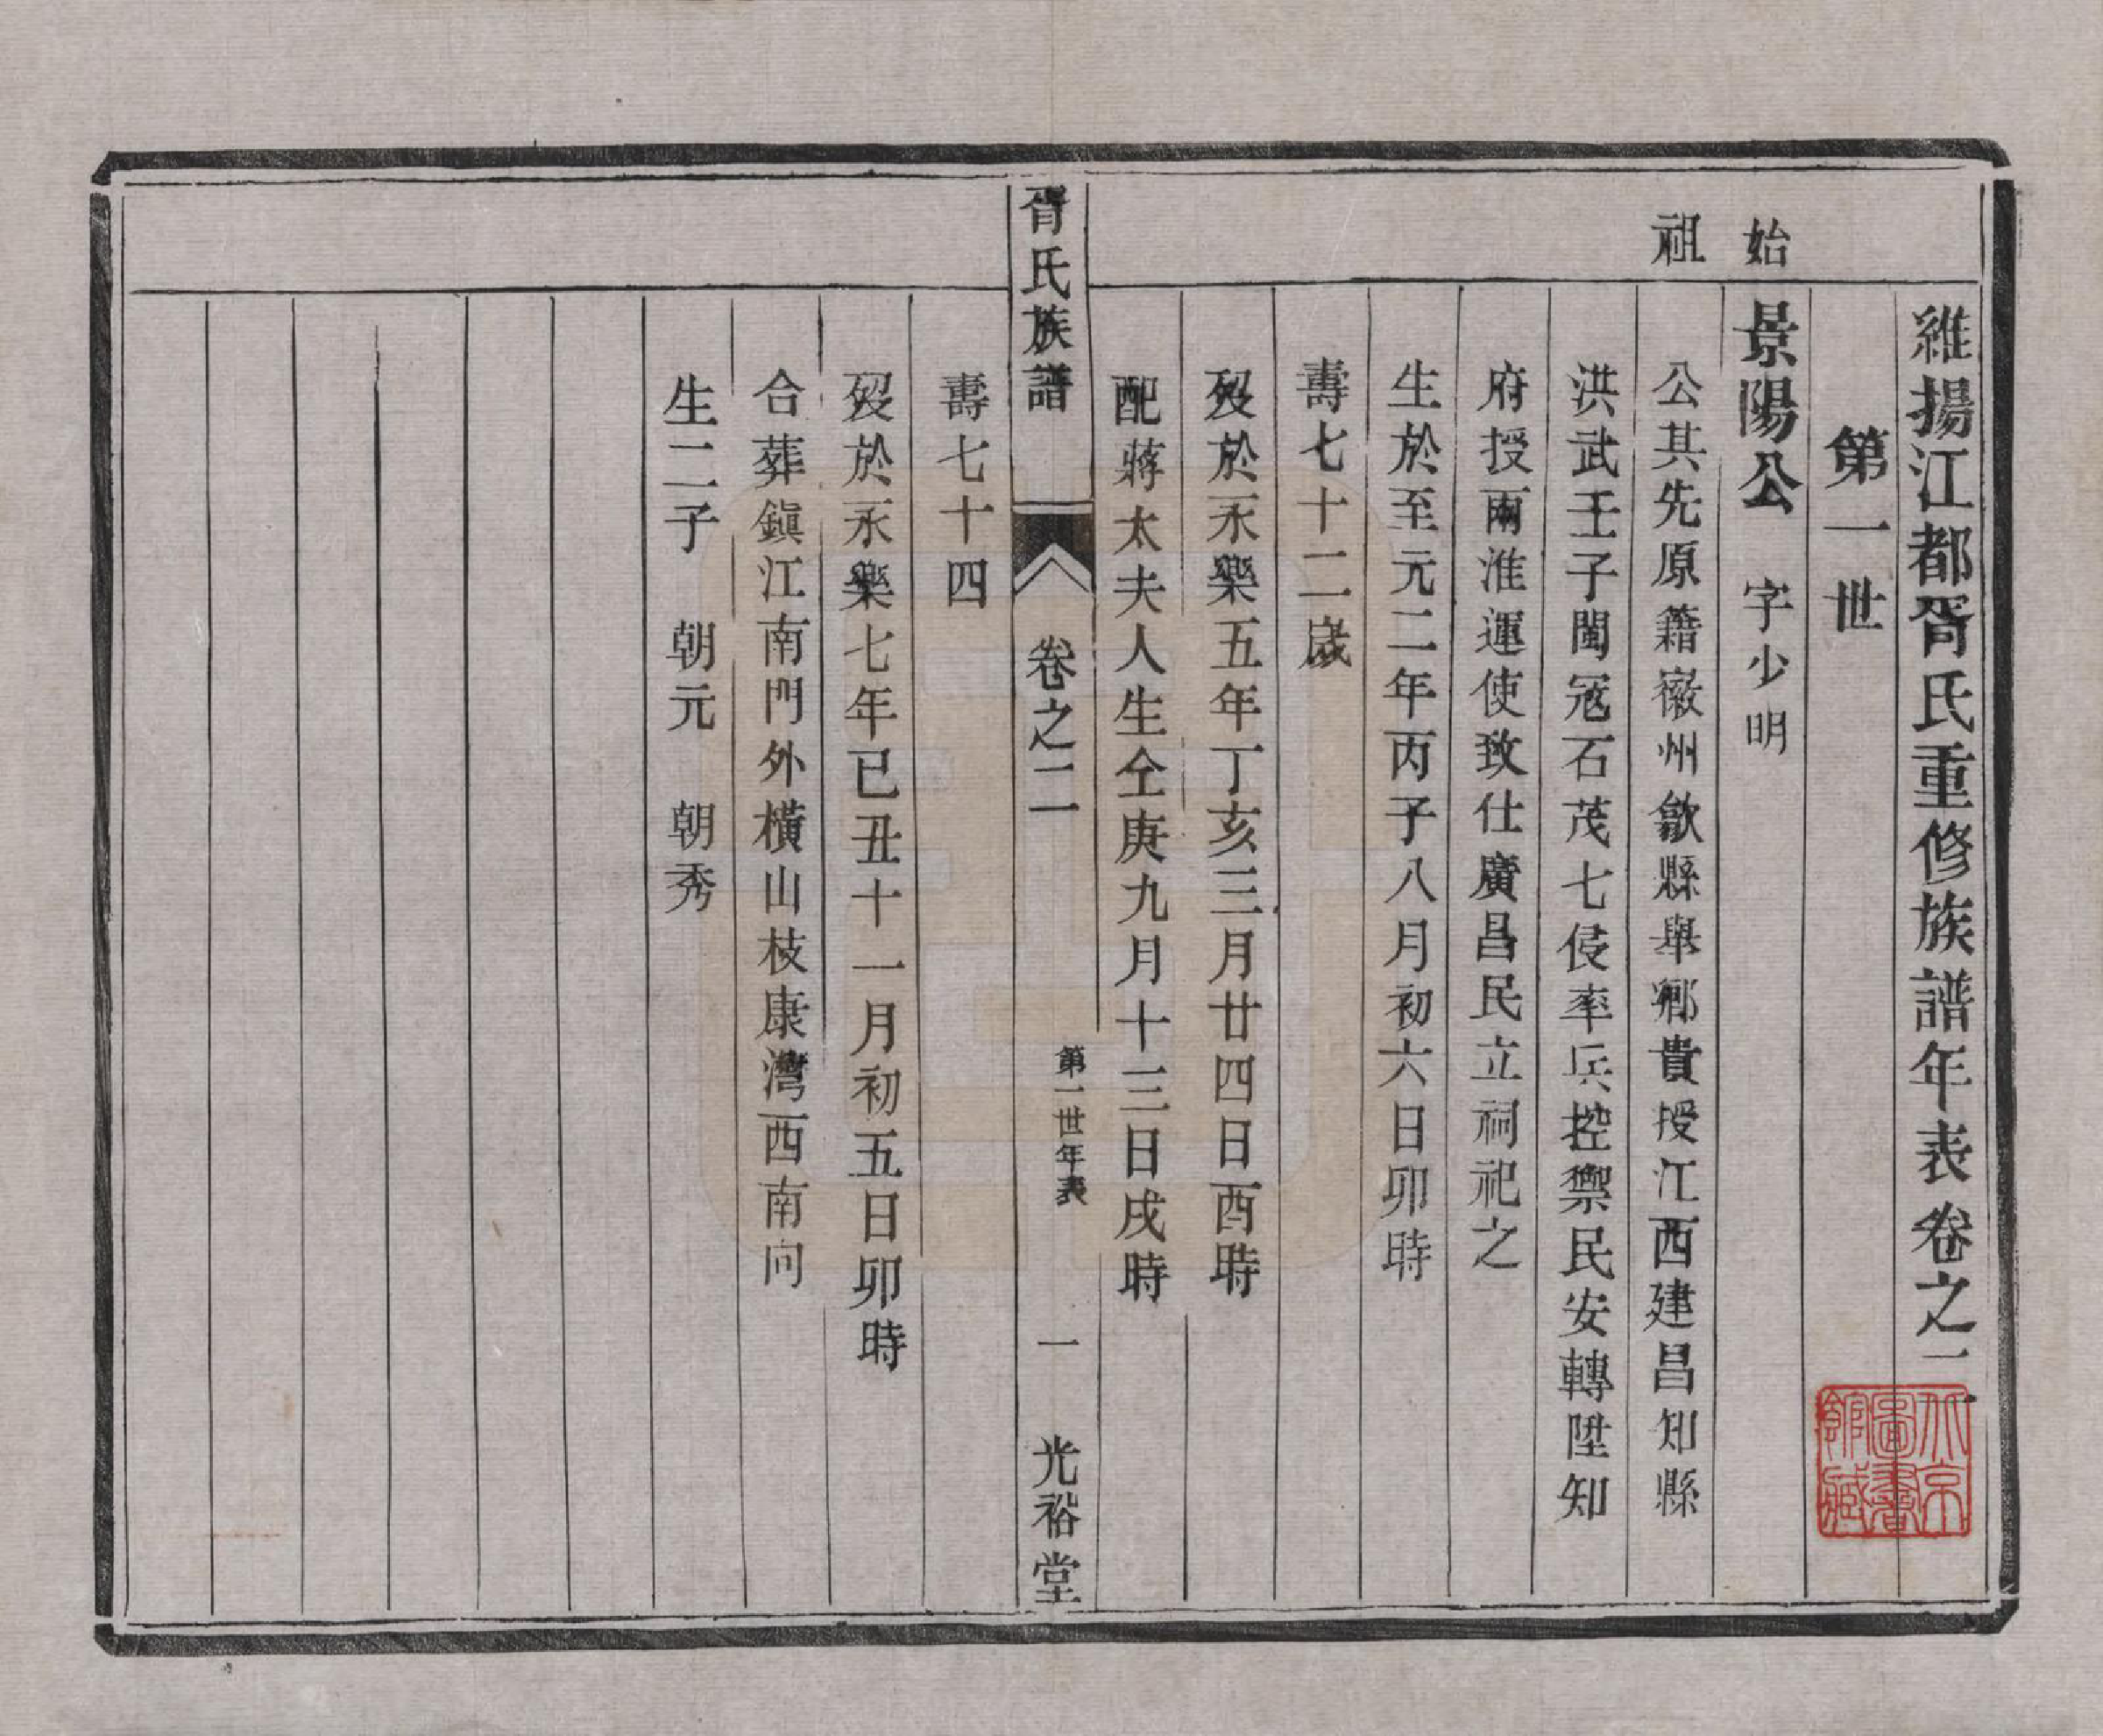 維揚江都胥氏重修族譜年表卷之二
第一世
始祖
景陽公 字少明
公其先原籍徽州歙縣舉鄉貴授江西建昌知縣
洪武壬子閩冦石茂七侵率兵控禦民安轉陞知
府授兩淮運使致仕廣昌民立祠祀之
生於至元二年丙子八月初六日卯時
壽七十二歲
歿於永樂五年丁亥三月廿四日酉時
配蔣太夫人生仝庚九月十三日戌時
胥氏族譜 卷之二 第一世年表 一 光裕堂
壽七十四
歿於永樂七年已丑十一月初五日卯時
合葬鎭江南門外橫山枝康灣西南向
生二子 朝元 朝秀
北京圖書館藏